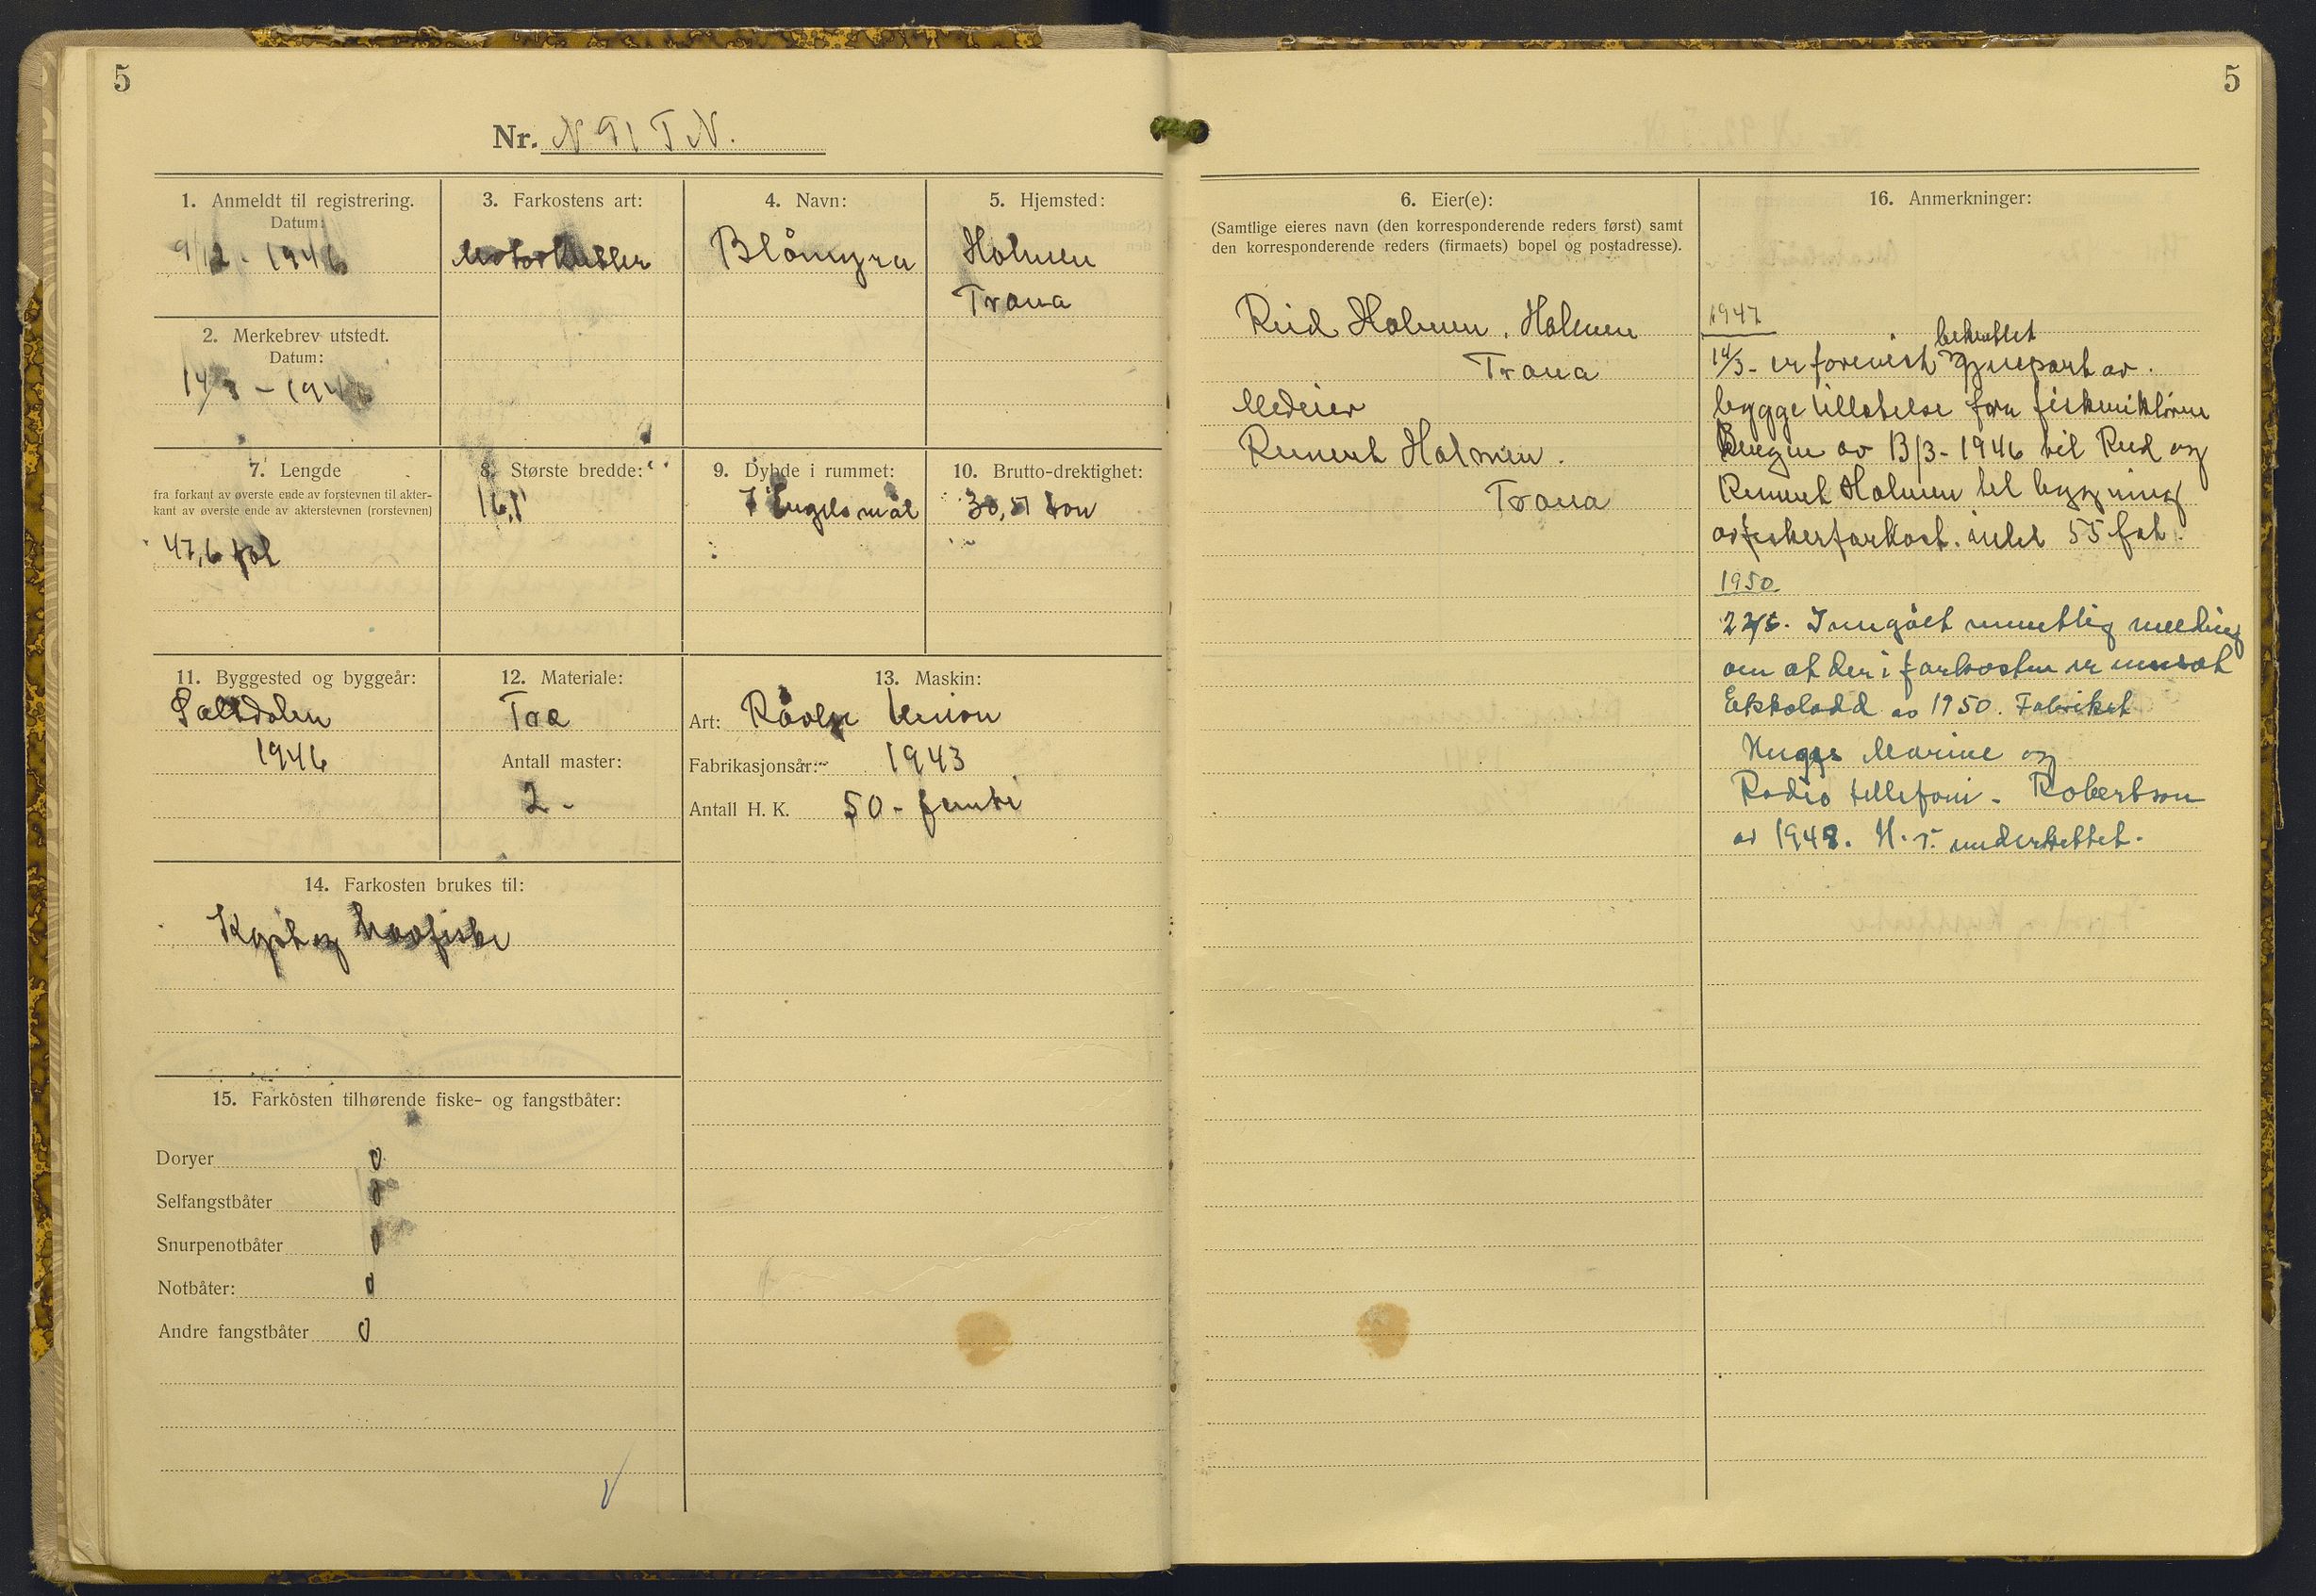 5
Nr. N 91 T N.
1. Anmeldt til registrering.
Datum:
9/12 - 1946
2. Merkebrev utstedt.
Datum:
14/3 - 194
3. Farkostens art:
Motorkutter
4. Navn:
Blåmyra
5. Hjemsted:
Holmen
Træna
7. Lengde
fra forkant av øverste ende av forstevnen til akter-
kant av øverste ende av akterstevnen (rorstevnen)
47,6 fot
8. Største bredde:
16,1
9. Dybde i rummet:
7 Engelsmål
10. Brutto-drektighet:
30,51 ton
11. Byggested og byggeår:
Saltdalen
1946
12. Materiale:
Tre
Antall master:
2 -
13. Maskin:
Art: Råolje Union
Fabrikasjonsår: 1943
Antall H. K. 50 - femti
14. Farkosten brukes til:
Kyst og havfiske
15. Farkosten tilhørende fiske- og fangstbåter:
Doryer 0
Selfangstbåter 0
Snurpenotbåter 0
Notbåter: 0
Andre fangstbåter 0
5
6. Eier(e):
(Samtlige eieres navn (den korresponderende reders først) samt
den korresponderende reders (firmaets) bopel og postadresse).
Holmen. Holmen
Træna
Medeier
Holmen.
Træna
16. Anmerkninger:
1947
bekreftet
14/3 - er forevist gjenpart av
byggetillatelse fra fiskeridirektøren
Bergen av 13/3 - 1946 til og
Holmen til bygging
av fiskerfarkost. inntil 55 fot.
1950.
Inngått muntlig melding
om at der i farkosten er innsat
Ekkolodd av 1950. Fabrikat
Hugges Marine og
Radio tellefoni - Robertson
av 1948. H.T. underrettet.